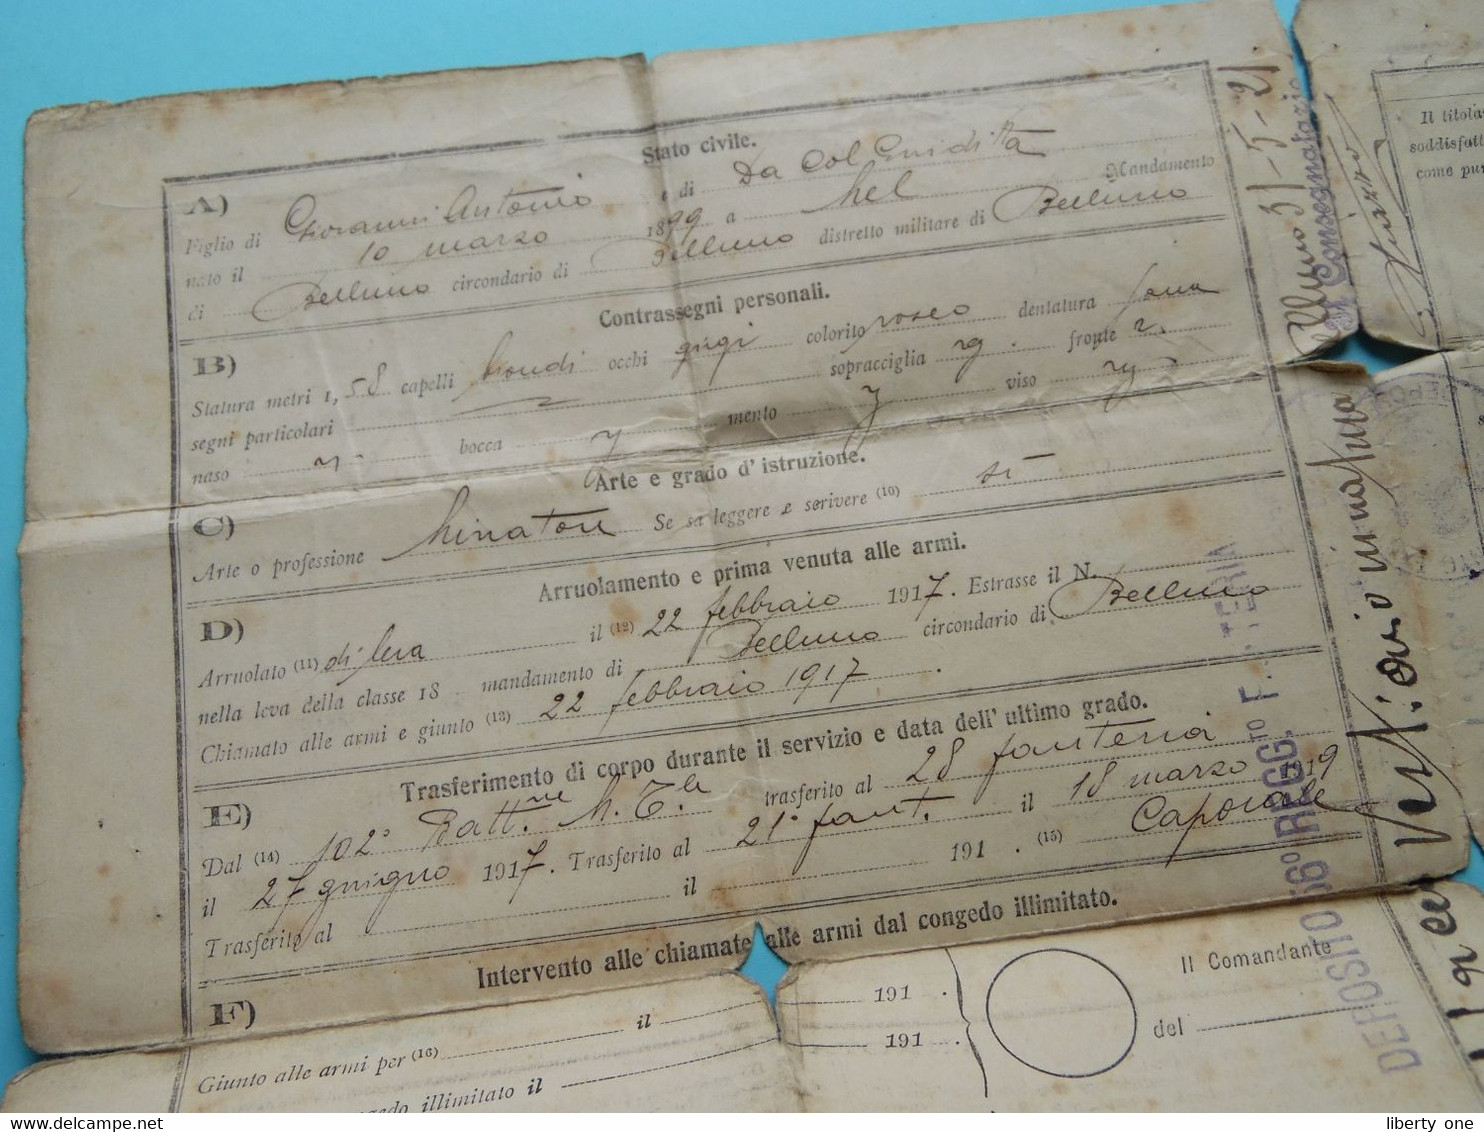 Stato civile.
A)
Figlio di Giovanni Antonio e di Da Col Giuditta
nato il 10 marzo 1899 a Mel Mandamento
di Belluno circondario di Belluno distretto militare di Belluno
Contrassegni personali.
B)
Statura metri 1, 58 capelli biondi occhi grigi colorito roseo dentatura sana
segni particolari sopracciglia rg. fronte r.
naso r. bocca r mento r viso rg
Arte e grado d'istruzione.
C)
Arte o professione Minatore Se sa leggere e scrivere (10) si
Arruolamento e prima venuta alle armi.
D)
Arruolato (11) di leva il (12) 22 febbraio 1917. Estrasse il N.
nella leva della classe 18 mandamento di Belluno circondario di Belluno
Chiamato alle armi e giunto (13) 22 febbraio 1917.
Trasferimento di corpo durante il servizio e data dell'ultimo grado.
E)
Dal (14) 102° Batt.ne M. T.le trasferito al 28 fanteria
il 27 giugno 1917. Trasferito al 21° fant. il 18 marzo 1919
Trasferito al il 191 . (15) Caporale
Intervento alle chiamate alle armi dal congedo illimitato.
F)
Giunto alle armi per (16) il 191 .
congedo illimitato il 191 .
Il Comandante
del
31-5-21
Il Consegnatario
DEPOSITO 56° REGG.TO F TERIA
Il titola
soddisfatt
come pur
liberty one